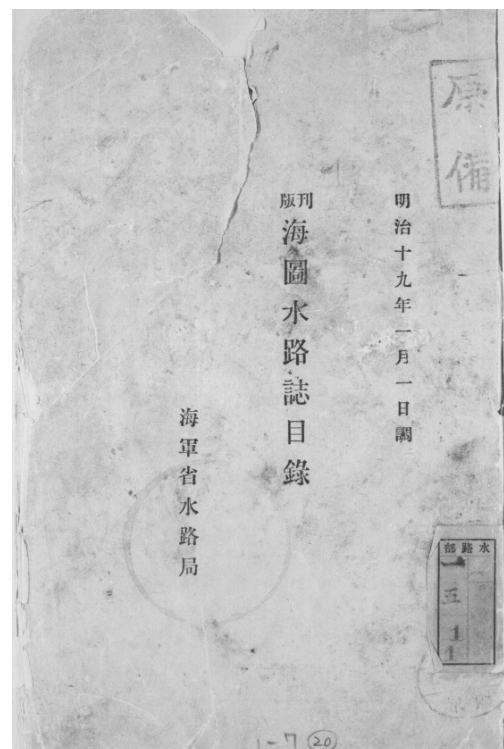 原備
明治十九年一月一日調
刊版
海圖水路誌目錄
海軍省水路局
水路部
一
五
1
1
1-7 ⑳